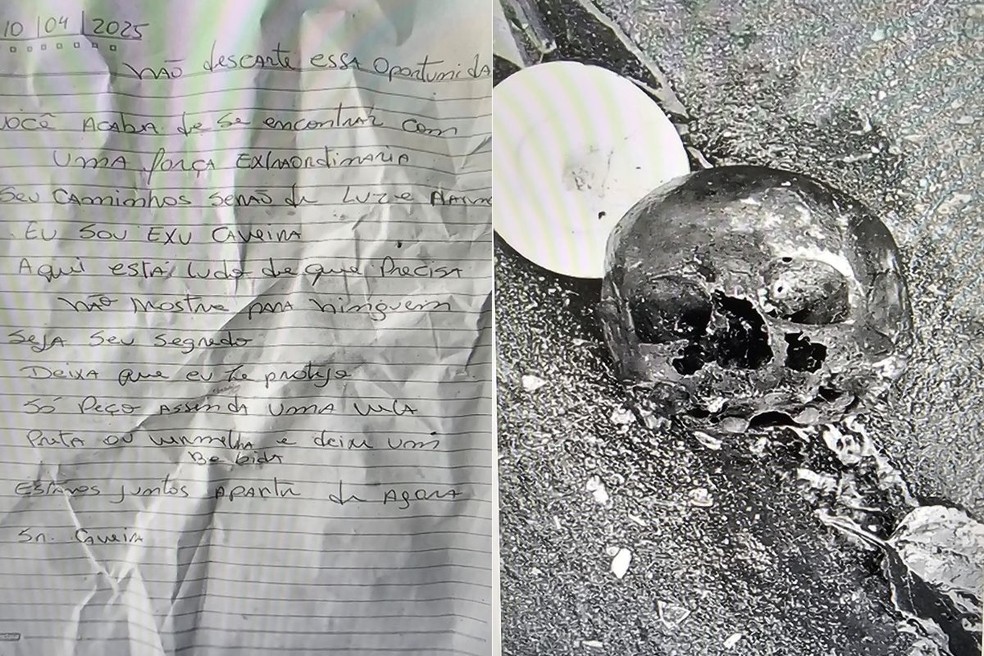 10/04/2025
NÃO descarte essa oportunida
você ACABA de se encontrar com
UMA força EXTRAORDINARIA
Seu CAminhos SERÃO de LUZ e
EU SOU EXU CAVEIRA
Aqui está tudo de que Precisa
NÃO Mostre PARA ninguem
SEJA Seu segredo
DEIXA que eu te proteja
Só Peço ASSENDA UMA VELA
Preta ou vermelha e deixe um
Bebida
ESTAMOS juntos APARTIR de AGORA
Sr. CAVEIRA